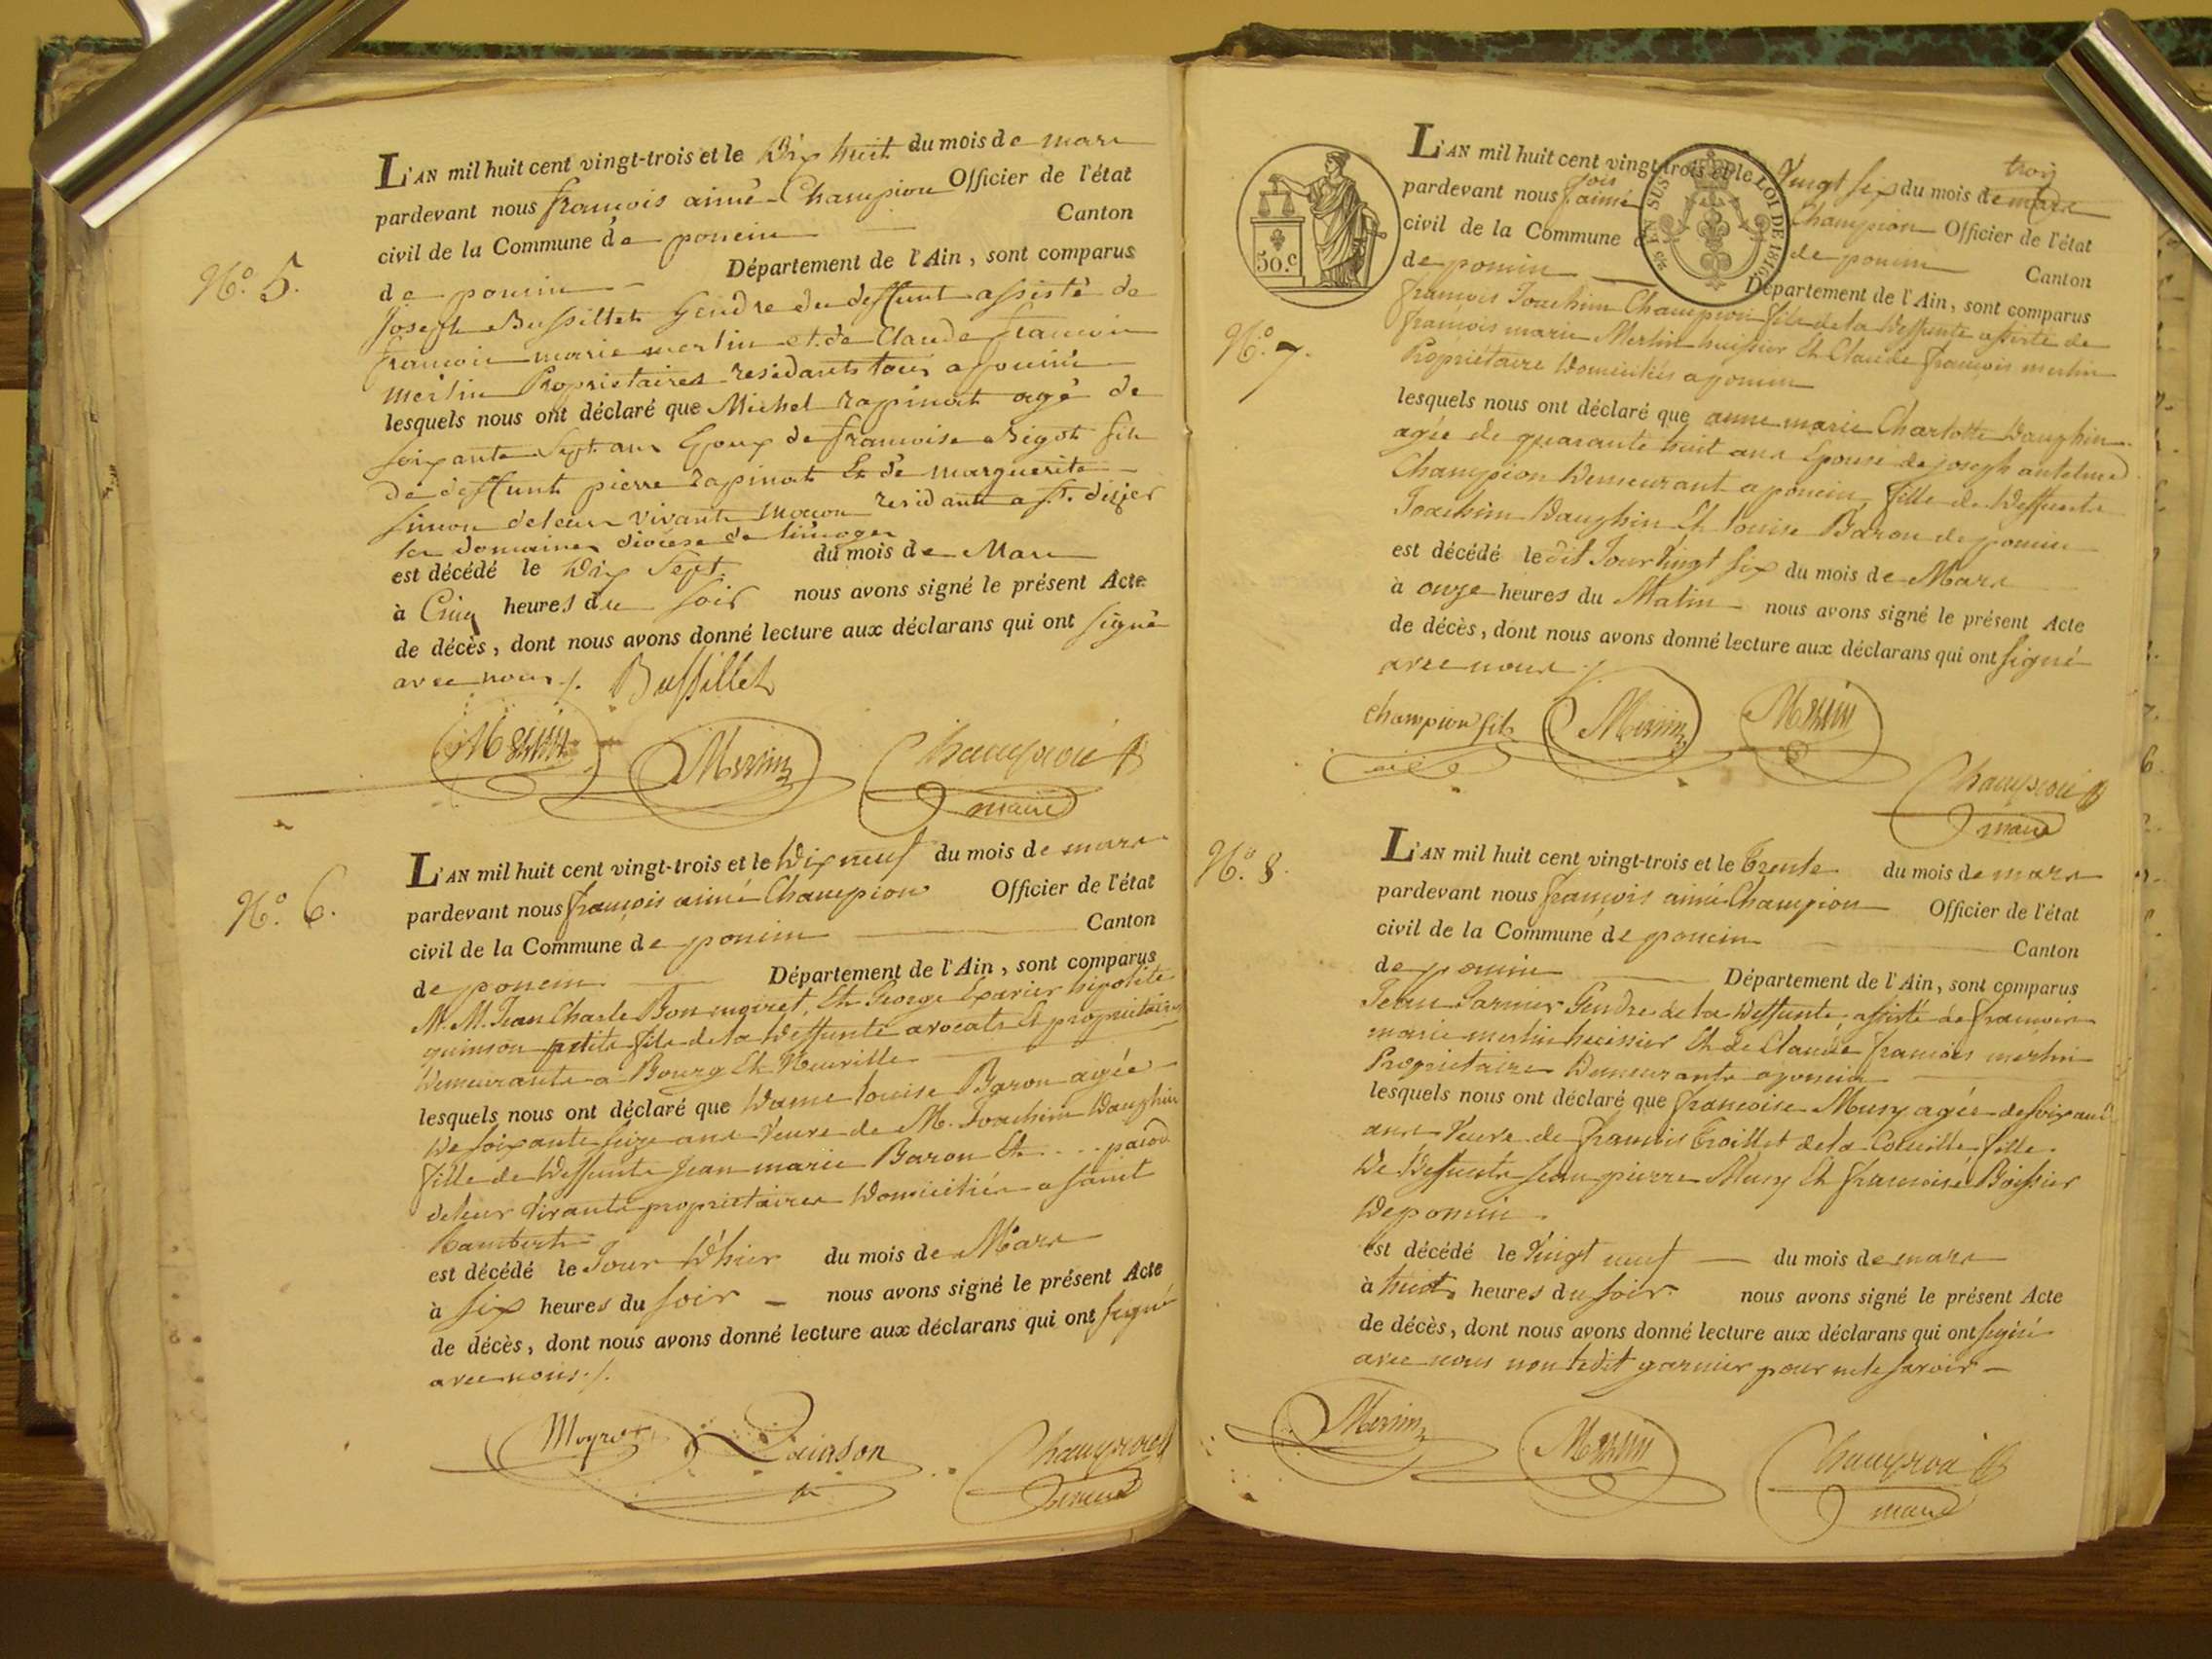 N.º 5.
L'AN mil huit cent vingt-trois et le Dix huit du mois de mars
pardevant nous françois aimé Champion Officier de l'état
civil de la Commune de poncin Canton
de poncin Département de l'Ain, sont comparus
Joseph Bussillet Gendre du deffunt assisté de
françois marie merlin et de Claude françois
merlin Propriétaires residants tous a poncin
lesquels nous ont déclaré que Michel rapinat agé de
soixante Sept ans Epoux de françoise Bigot fils
de deffunt pierre rapinat Et de marguerite
simon deleur vivant residant a St. dizier
les domaines diocese de limoges
est décédé le Dix Sept du mois de Mars
à Cinq heures du soir nous avons signé le présent Acte
de décès, dont nous avons donné lecture aux déclarans qui ont signé
avec nous ./. Bussillet
Merlin Merlin Champion
maire
N.º 6.
L'AN mil huit cent vingt-trois et le Dix neuf du mois de mars
pardevant nous françois aimé Champion Officier de l'état
civil de la Commune de poncin Canton
de poncin Département de l'Ain, sont comparus
M. M. Jean Charle Bon moiret, Et George Exavier hipolite
quinson petits fils de la Deffunte avocats Et propriétaires
Demeurants a Bourg Et Neuville
lesquels nous ont déclaré que Dame louise Baron agée
De soixante seize ans Veuve de M. Joachim Dauphin
fille de Deffunts Jean marie Baron Et ....
deleur vivants propriétaires Domiciliés a saint
Rambert
est décédé le Jour D'hier du mois de Mars
à six heures du soir nous avons signé le présent Acte
de décès, dont nous avons donné lecture aux déclarans qui ont signé
avec nous ./.
Moyret Quinson Champion
maire
50.c
EN SUS LOI DE 1816.
N.º 7.
L'AN mil huit cent vingt-trois et le Vingt six du mois de mars
pardevant nous fois aimé Champion Officier de l'état
civil de la Commune de poncin Canton
de poncin Département de l'Ain, sont comparus
françois Joachim Champion fils de la Deffunte assisté de
françois marie Merlin huissier Et Claude françois merlin
Propriétaire Domiciliés a poncin
lesquels nous ont déclaré que anne marie Charlotte Dauphin
agée de quarante huit ans Epouse de joseph antelme
Champion Demeurant a poncin, fille de Deffunts
Joachim Dauphin Et louise Baron de poncin
est décédé le dit Jour Vingt six du mois de Mars
à onze heures du Matin nous avons signé le présent Acte
de décès, dont nous avons donné lecture aux déclarans qui ont signé
avec nous ./.
Champion fils Merlin Merlin
Champion
maire
N.º 8.
L'AN mil huit cent vingt-trois et le Trente du mois de mars
pardevant nous françois aimé Champion Officier de l'état
civil de la Commune de poncin Canton
de poncin Département de l'Ain, sont comparus
Jean Garnier Gendre de la Deffunte, assisté de françois
marie merlin huissier Et de Claude françois merlin
Propriétaire Demeurants a poncin
lesquels nous ont déclaré que françoise Mury agée de soixante
ans Veuve de françois Troillet de la fille
De Deffunts Jean pierre Mury Et françoise Boissier
De poncin.
est décédé le Vingt neuf du mois de mars
à huit heures du soir nous avons signé le présent Acte
de décès, dont nous avons donné lecture aux déclarans qui ont signé
avec nous non ledit garnier pour ne le savoir
Merlin Merlin Champion
maire